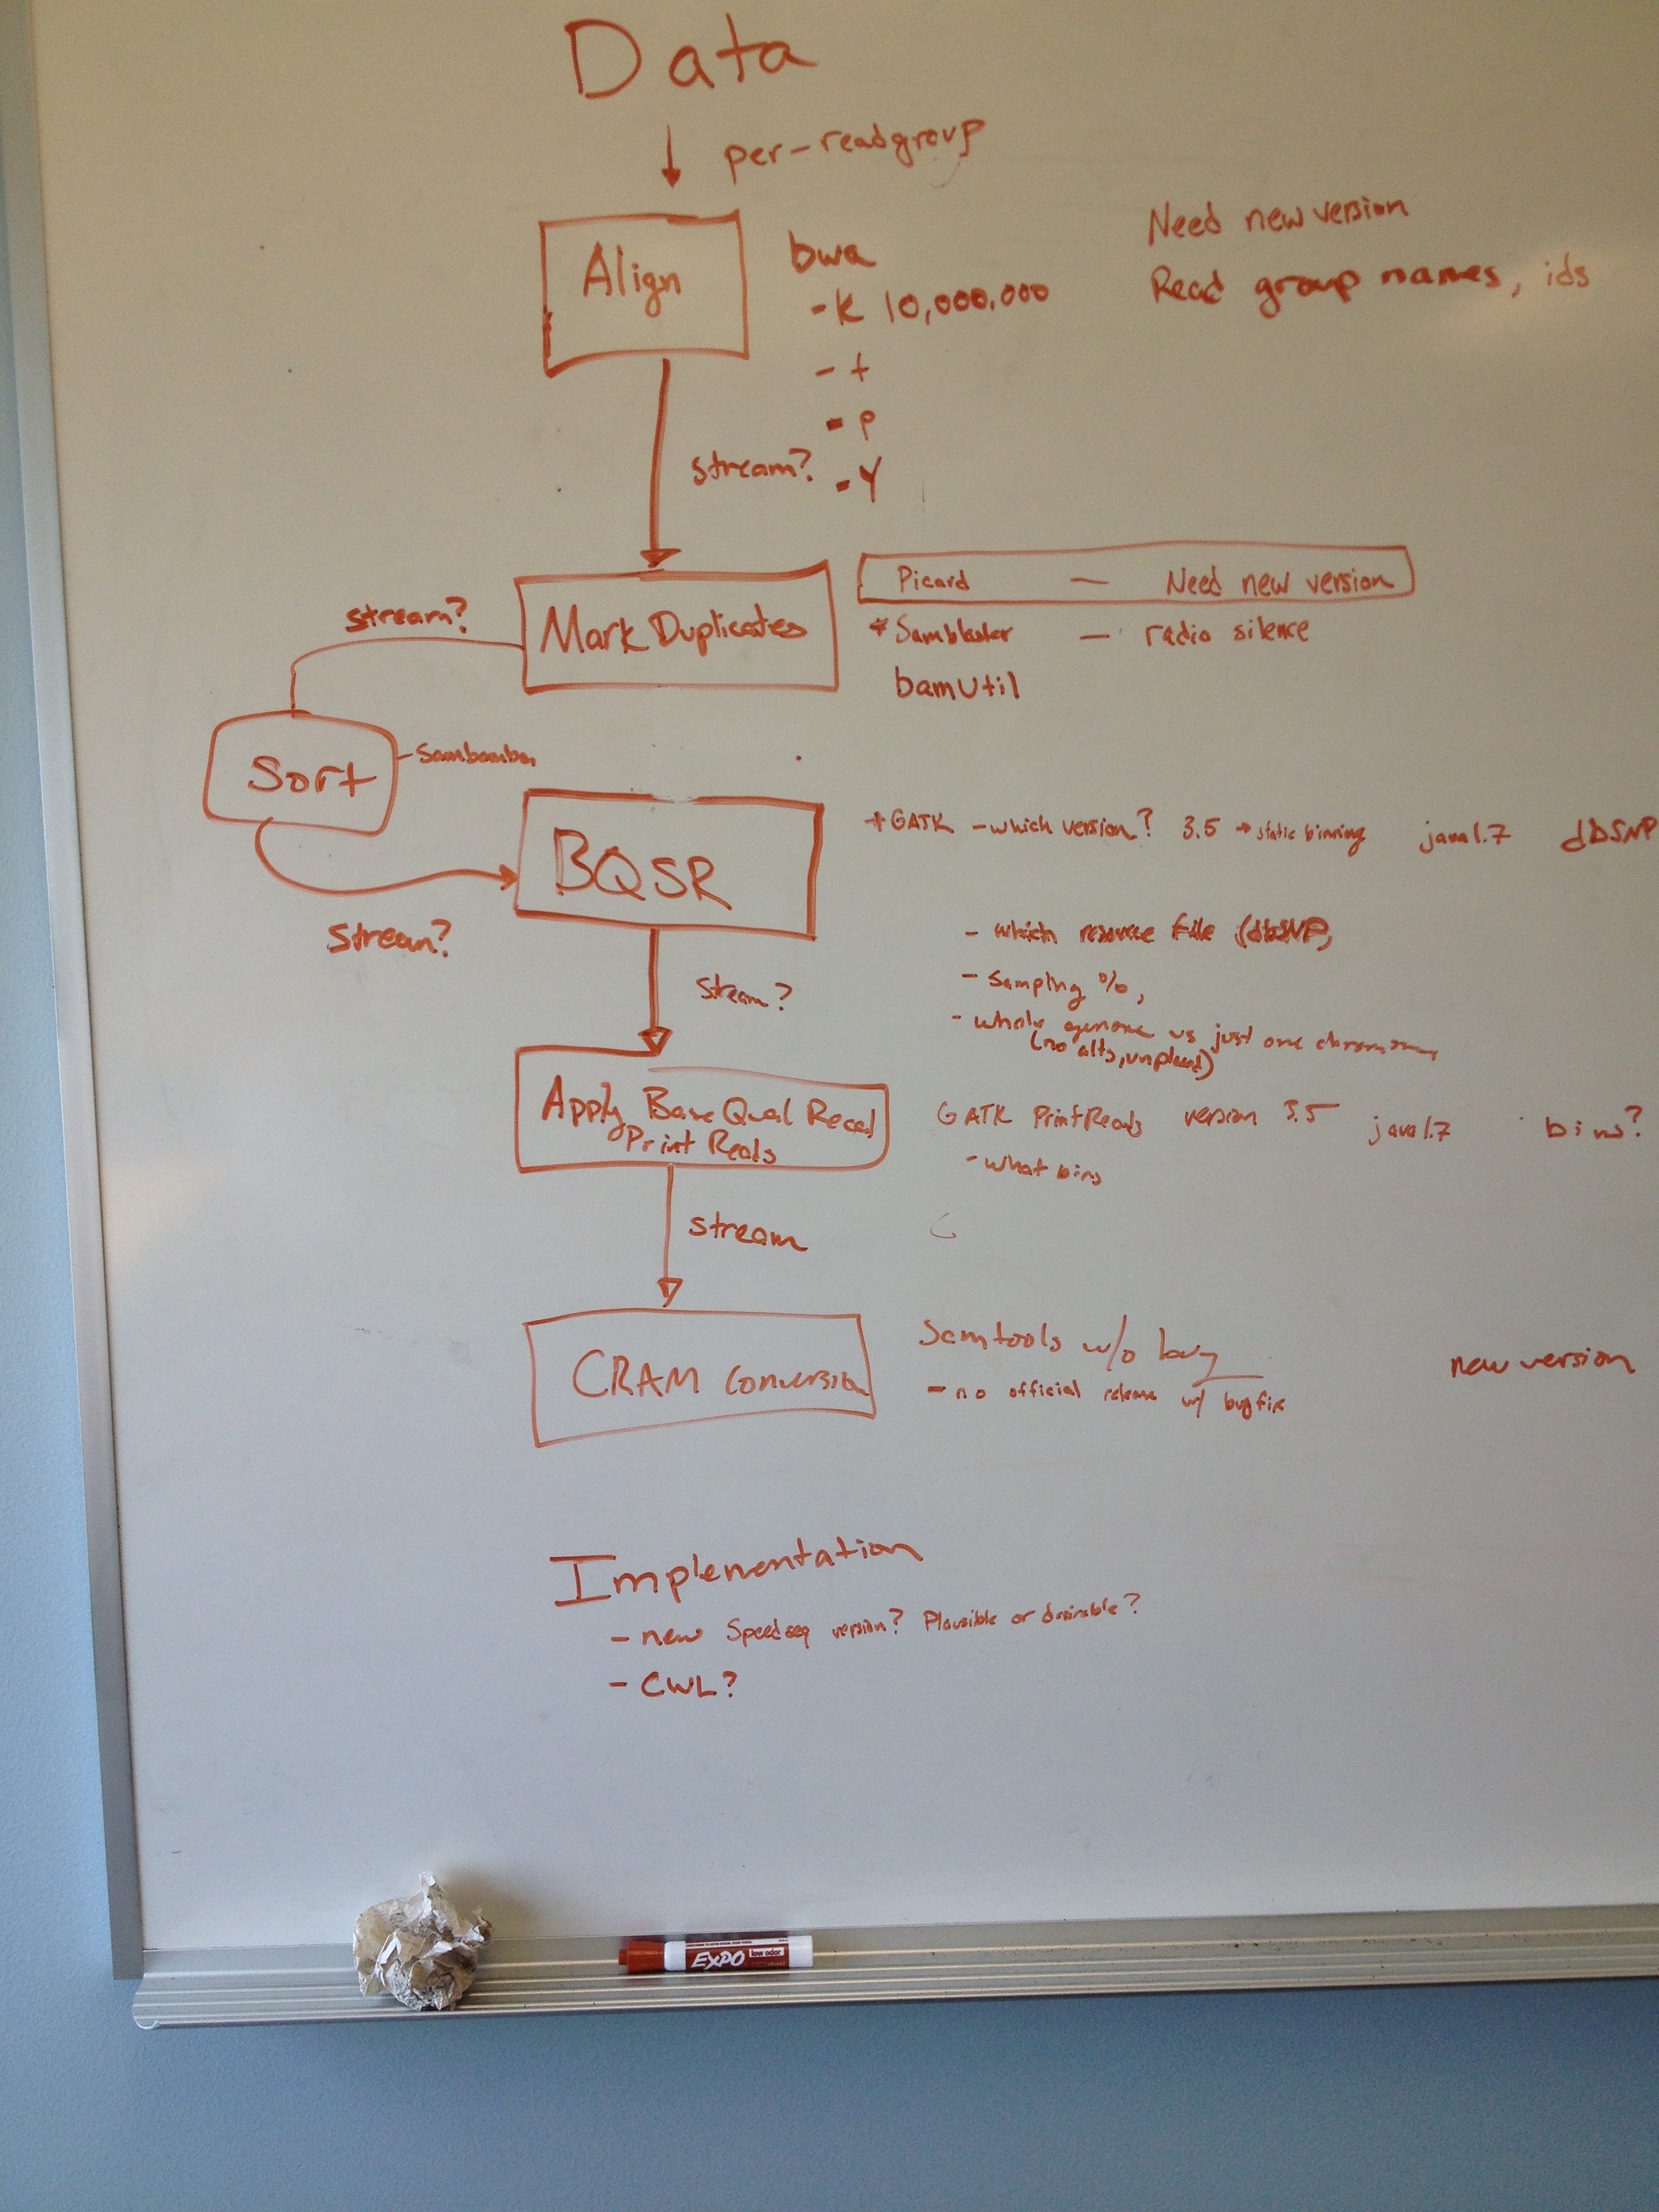 Data
per-readgroup
Align
bwa
-K 10,000,000
- t
- p
- Y
Need new version
Read group names, ids
stream?
Mark Duplicates
Picard — Need new version
*Samblaster — radio silence
bamUtil
stream?
Sort
-Sambamba
stream?
BQSR
+GATK -which version? 3.5 → static binning java1.7 dbSNP
- which resource file (dbSNP)
- Sampling %,
- whole genome vs just one chromosome
(no alts, unplaced)
stream?
Apply Base Qual Recal
Print Reads
GATK PrintReads version 3.5 java1.7 bins?
- what bins
stream
CRAM Conversion
Samtools w/o bug
- no official release w/ bugfix
new version
Implementation
- new Speedseq version? Plausible or desirable?
- CWL?
EXPO low odor